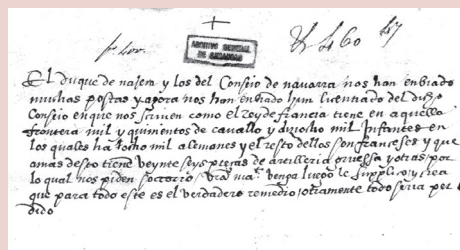 ARCHIVO GENERAL
DE SIMANCAS
El duque de najera y los del Consejo de navarra nos han enbiado
muchas postas y agora nos han enbiado hun licentiado del dicho
Consejo en que nos scriuen como el rey de francia tiene en aquella
frontera mil y quinientos de cavallo y dizocho mil Infantes en
los quales ha ocho mil alemanes y el resto dellos son franceses y que
amas desto tiene veynte seys pieças de artilleria gruessa y otras por
lo qual nos piden soccorro venga luego le supplico y crea
que para todo este es el verdadero remedio otramente todo seria per
dido